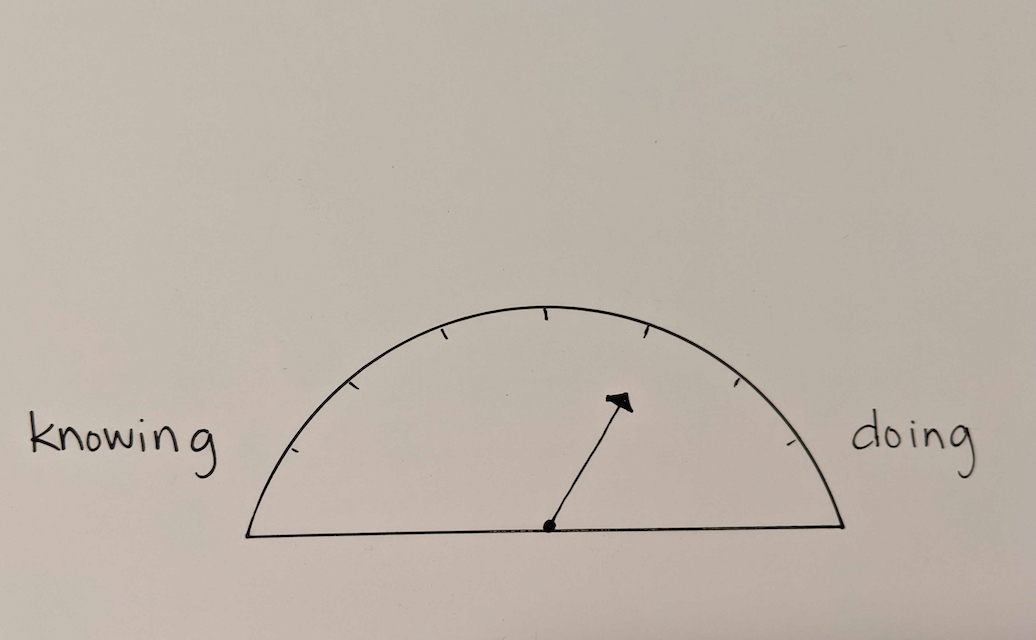 knowing
doing